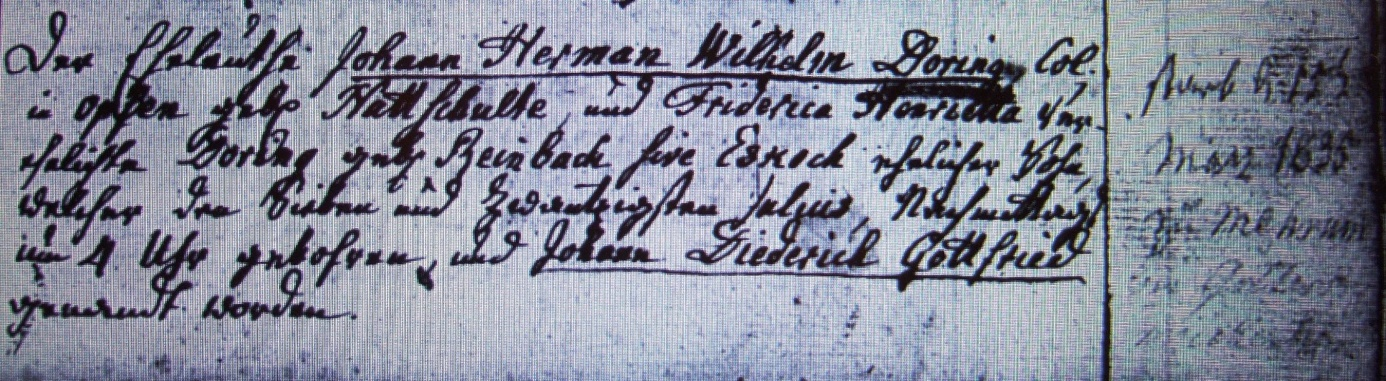 Der Eheleuthe Johann Herman Wilhelm Doring Col.
in gebr Nattschulte und Friderica Henrietta Ver-
ehelichte Doring gebr Reinbach sive ehelicher Sohn,
welcher den Sieben und Zwantzigsten Julius, Nachmittags
um 4 Uhr gebohren, und Johann Diederich Gottfried
genandt worden.
starb
März 1835
zu Mehrum